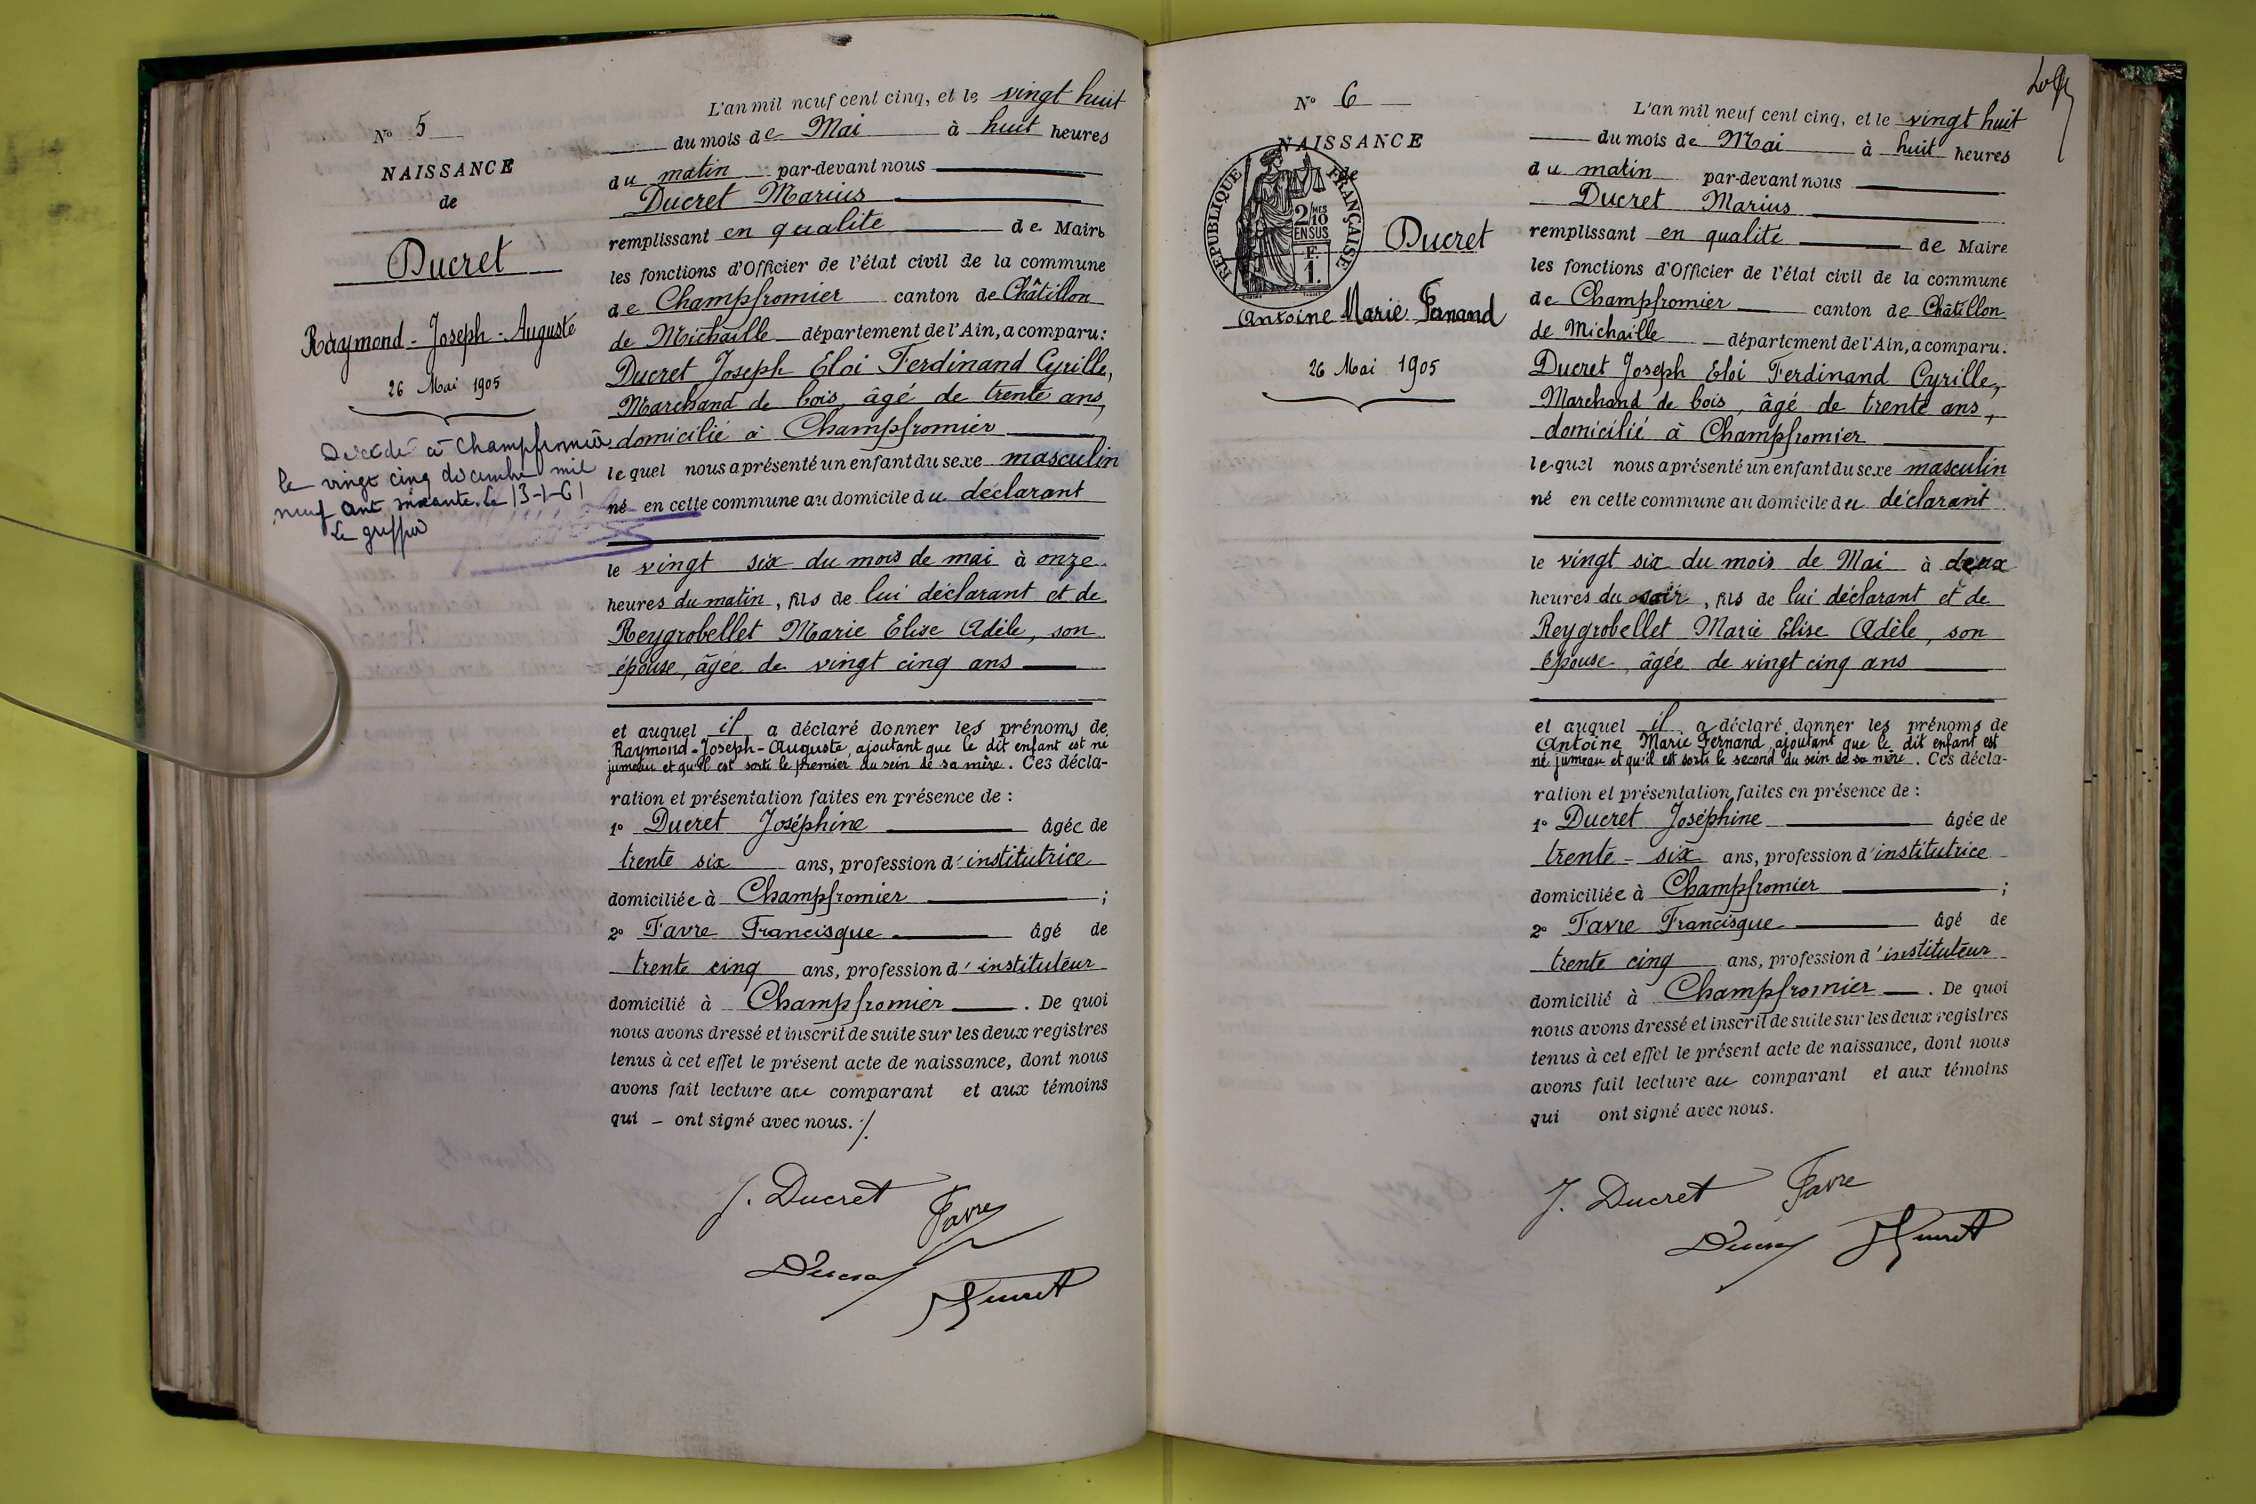 N° 5
NAISSANCE
de
Ducret
Raymond - Joseph - Auguste
26 Mai 1905
Décédé à Champfromier
le vingt cinq décembre mil
neuf cent soixante. Le 13-1-61
Le greffier
L'an mil neuf cent cinq, et le vingt huit
du mois de Mai à huit heures
du matin par-devant nous
Ducret Marius
remplissant en qualité de Maire
les fonctions d'Officier de l'état civil de la commune
de Champfromier canton de Châtillon
de Michaille département de l'Ain, a comparu:
Ducret Joseph Eloi Ferdinand Cyrille,
Marchand de bois, âgé de trente ans,
domicilié à Champfromier
lequel nous a présenté un enfant du sexe masculin
né en cette commune au domicile du déclarant
le vingt six du mois de mai à onze
heures du matin, fils de lui déclarant et de
Reygrobellet Marie Elise Adèle, son
épouse, âgée de vingt cinq ans
et auquel il a déclaré donner les prénoms de
Raymond-Joseph-Auguste, ajoutant que le dit enfant est né
jumeau et qu'il est sorti le premier du sein de sa mère. Ces décla-
ration et présentation faites en présence de :
1° Ducret Joséphine âgée de
trente six ans, profession d'institutrice
domiciliée à Champfromier ;
2° Favre Francisque âgé de
trente cinq ans, profession d'instituteur
domicilié à Champfromier . De quoi
nous avons dressé et inscrit de suite sur les deux registres
tenus à cet effet le présent acte de naissance, dont nous
avons fait lecture au comparant et aux témoins
qui - ont signé avec nous. ./.
J. Ducret Favre
Ducret
N° 6
NAISSANCE
de
RÉPUBLIQUE FRANÇAISE
2/10MES
EN SUS
F.
1.
Ducret
Antoine Marie Fernand
26 Mai 1905
L'an mil neuf cent cinq, et le vingt huit
du mois de Mai à huit heures
du matin par-devant nous
Ducret Marius
remplissant en qualité de Maire
les fonctions d'Officier de l'état civil de la commune
de Champfromier canton de Châtillon
de Michaille département de l'Ain, a comparu:
Ducret Joseph Eloi Ferdinand Cyrille,
Marchand de bois, âgé de trente ans,
domicilié à Champfromier
lequel nous a présenté un enfant du sexe masculin
né en cette commune au domicile du déclarant
le vingt six du mois de Mai à deux
heures du soir, fils de lui déclarant et de
Reygrobellet Marie Elise Adèle, son
épouse, âgée de vingt cinq ans
et auquel il a déclaré donner les prénoms de
Antoine Marie Fernand, ajoutant que le dit enfant est
né jumeau et qu'il est sorti le second du sein de sa mère. Ces décla-
ration et présentation faites en présence de :
1° Ducret Joséphine âgée de
trente-six ans, profession d'institutrice
domiciliée à Champfromier ;
2° Favre Francisque âgé de
trente cinq ans, profession d'instituteur
domicilié à Champfromier . De quoi
nous avons dressé et inscrit de suite sur les deux registres
tenus à cet effet le présent acte de naissance, dont nous
avons fait lecture au comparant et aux témoins
qui ont signé avec nous.
J. Ducret Favre
Ducret